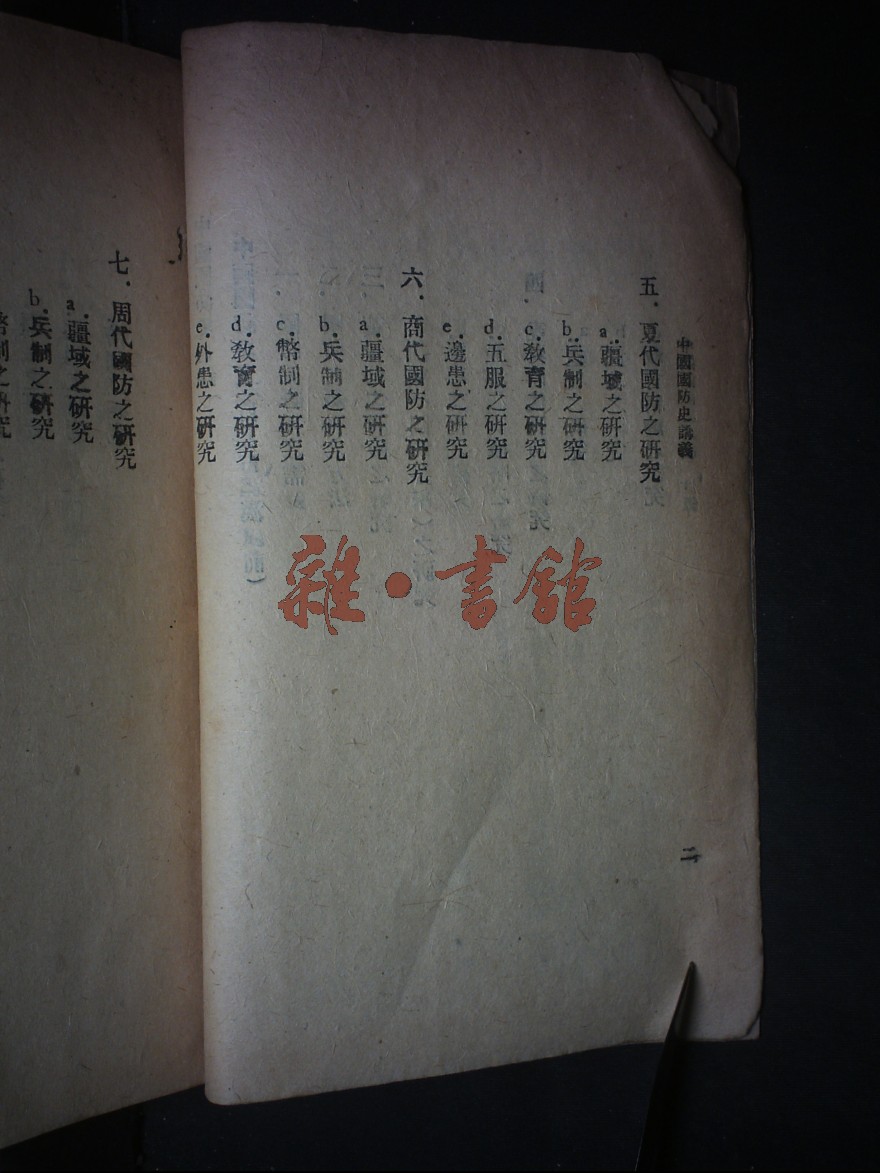 中國國防史講義
五．夏代國防之研究
a．疆域之研究
b．兵制之研究
c．教育之研究
d．五服之研究
e．邊患之研究
六．商代國防之研究
a．疆域之研究
b．兵制之研究
c．幣制之研究
d．教育之研究
e．外患之研究
二
七．周代國防之研究
a．疆域之研究
b．兵制之研究
幣制之研究
雜·書館